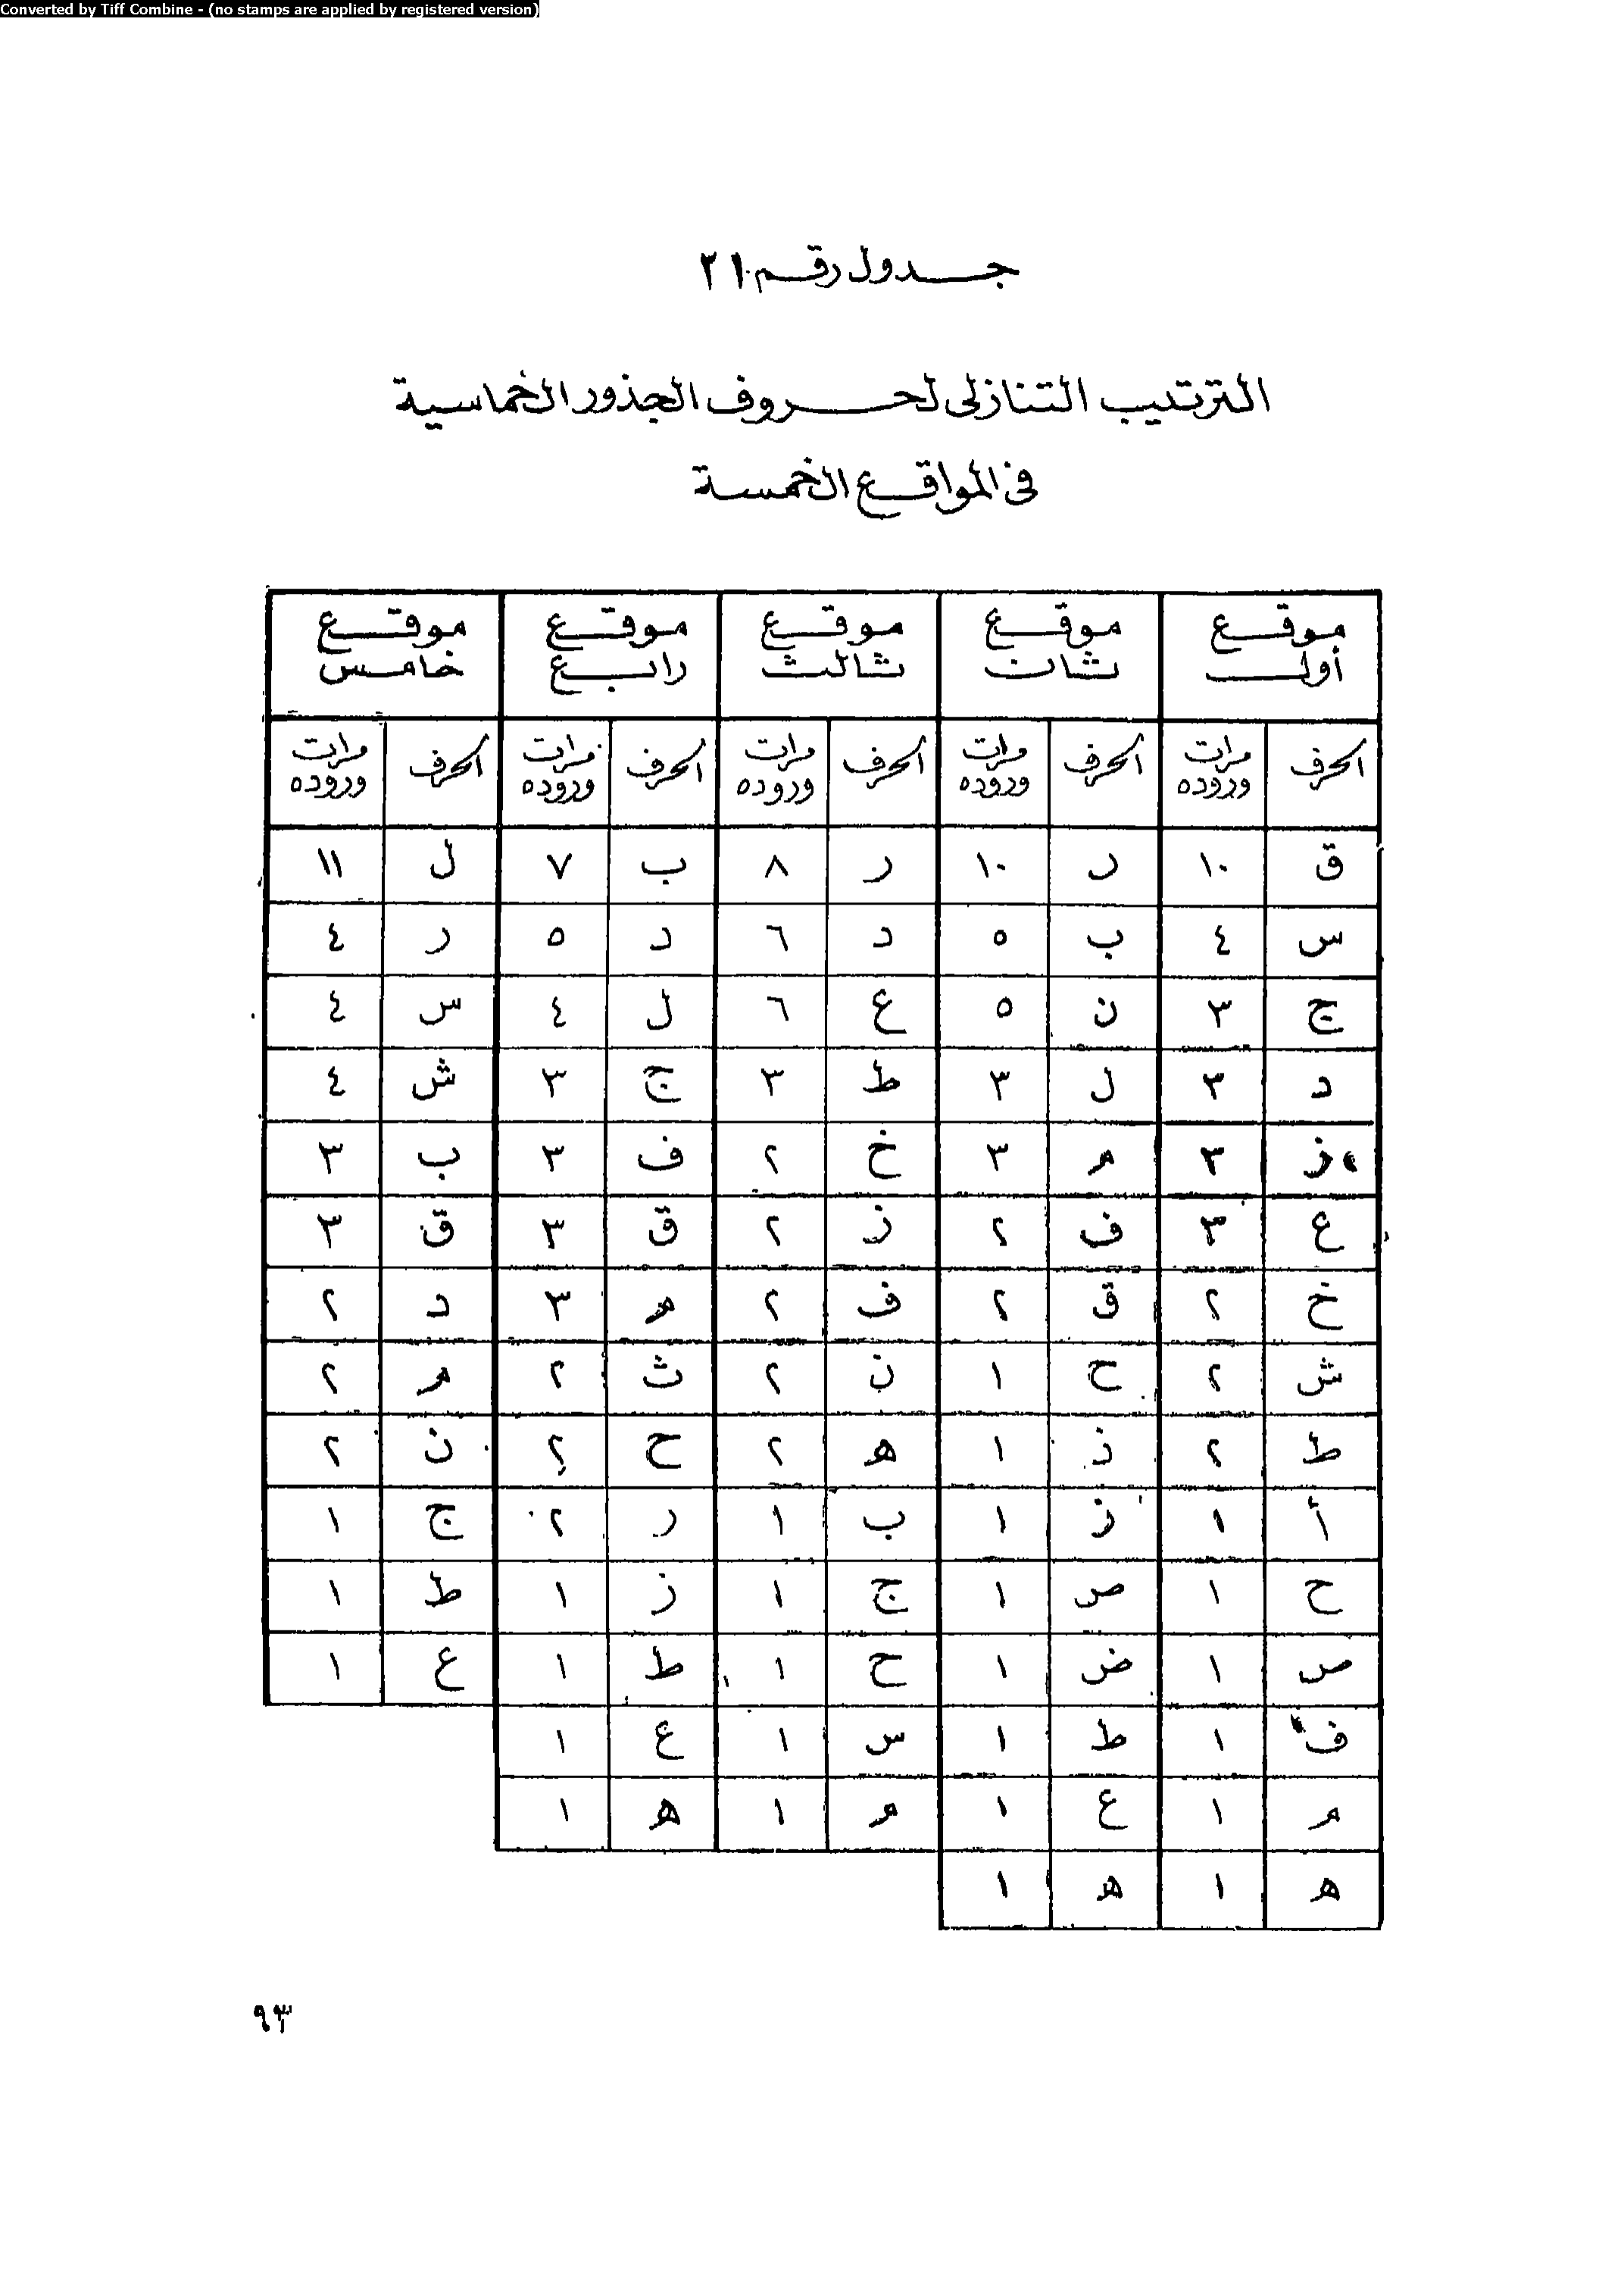 Converted by Tiff Combine - (no stamps are applied by registered version)
جدول رقم ٢١
الترتيب التنازلى لحروف الجذور الخماسية
فى المواقع الخمسة
موقع أول موقع ثان موقع ثالث موقع رابع موقع خامس
الحرف مرات وروده الحرف مرات وروده الحرف مرات وروده الحرف مرات وروده الحرف مرات وروده
ق ١٠ ر ١٠ ر ٨ ب ٧ ل ١١
س ٤ ب ٥ د ٦ د ٥ ر ٤
ج ٣ ن ٥ ع ٦ ل ٤ س ٤
د ٣ ل ٣ ط ٣ ج ٣ ش ٤
ز ٣ م ٣ خ ٢ ف ٣ ب ٣
ع ٣ ف ٢ ز ٢ ق ٣ ق ٣
خ ٢ ق ٢ ف ٢ م ٣ د ٢
ش ٢ ح ١ ن ٢ ث ٢ م ٢
ط ٢ ذ ١ ه ٢ ح ٢ ن ٢
أ ١ ز ١ ب ١ ر ٢ ج ١
ح ١ ص ١ ج ١ ز ١ ط ١
ص ١ ض ١ ح ١ ط ١ ع ١
ف ١ ط ١ س ١ ع ١
م ١ ع ١ م ١ ه ١
ه ١ ه ١
٩٣